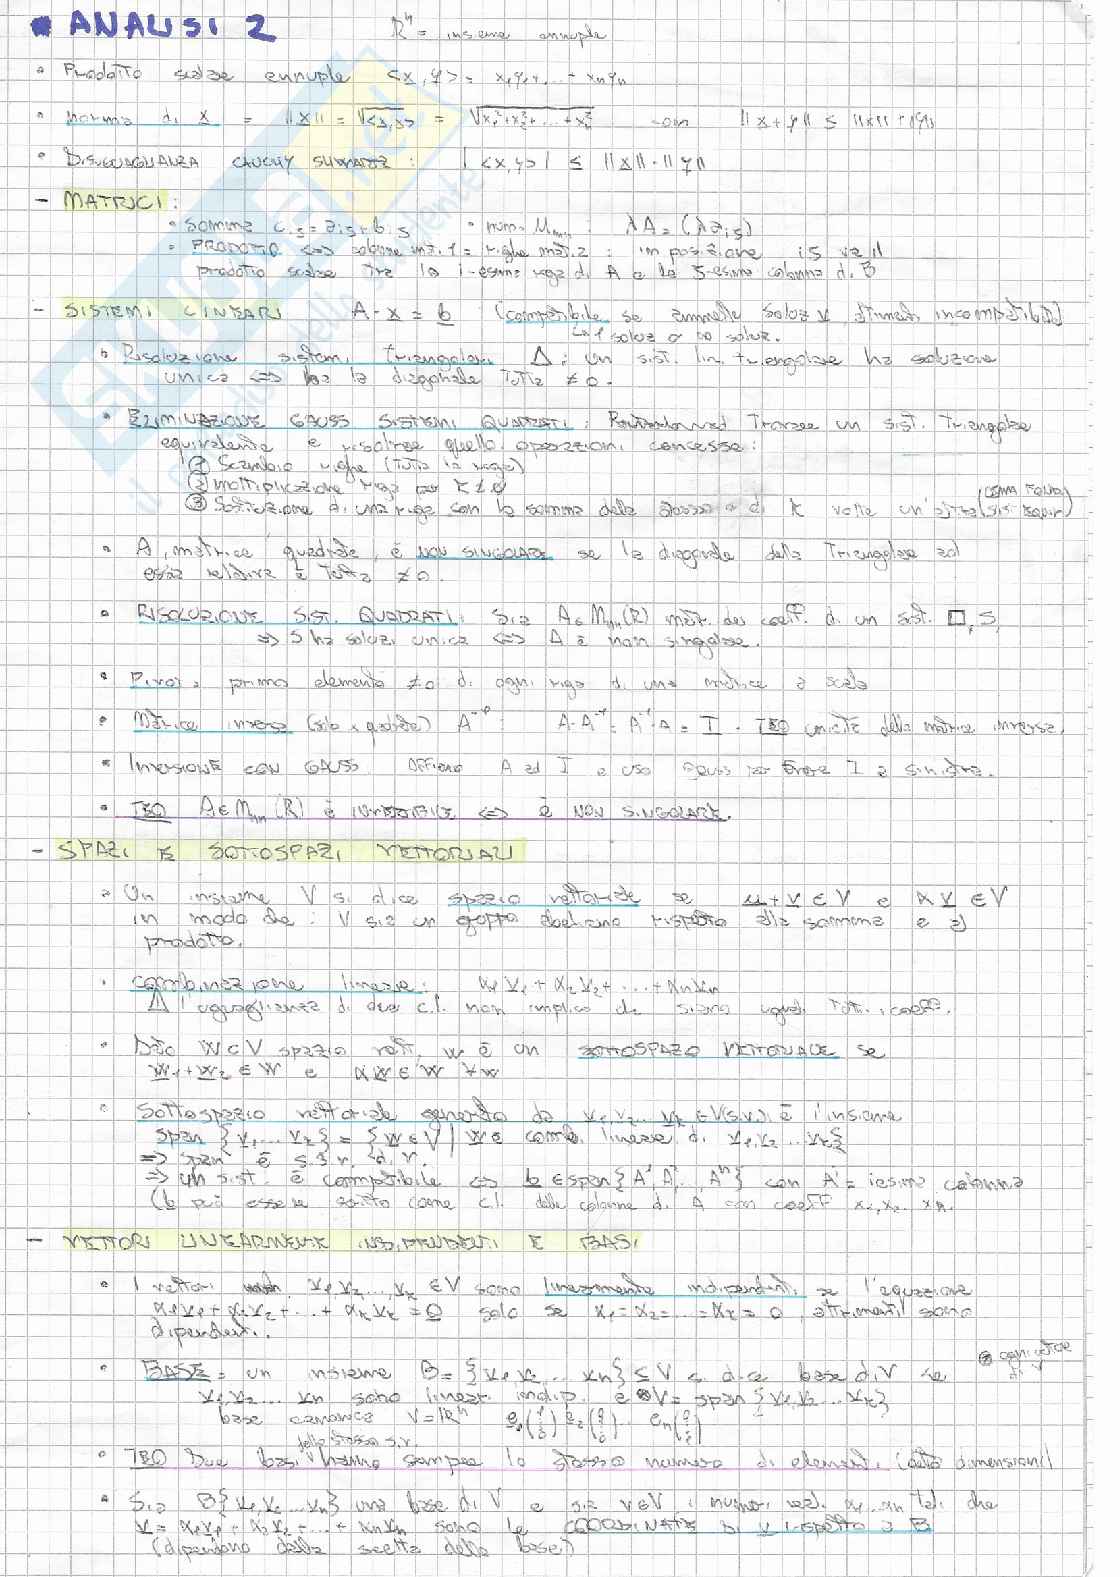 ANALISI 2 ℝⁿ = insieme ennuple
• Prodotto scalare ennuple <x,y> = x₁y₁+ ... + xnyn
• norma di x = ||x|| = √<x,x> = √x₁²+x₂²+...+xn² con ||x+y|| ≤ ||x||+||y||
• DISUGUAGLIANZA CAUCHY : |<x,y>| ≤ ||x||·||y||
- MATRICI:
• somma cis = ais + bis • : λA = (λais)
• PRODOTTO <=> colonne mat. 1 = righe mat. 2 : in posizione is va il
prodotto scalare tra la i-esima riga di A e la s-esima colonna di B
- SISTEMI LINEARI A·x = b (compatibile se ammette soluz , altrimenti incompatibile)
↳ 1 soluz o ∞ soluz.
• Risoluzione sistemi triangolari Δ : un sist. lin. triangolare ha soluzione
unica <=> ha la diagonale tutta ≠0.
• ELIMINAZIONE GAUSS SISTEMI QUADRATI : trovare un sist. triangolare
equivalente e risolvere quello. operazioni concesse:
① Scambio righe (tutta la riga)
② moltiplicazione riga per K≠0
③ Sostituzione di una riga con la somma della stessa e di K volte un'altra
• A, matrice quadrata, è NON SINGOLARE se la diagonale della triangolare ad
essa relativa è tutta ≠0.
• RISOLUZIONE SIST. QUADRATI: Sia A∈Mnn(R) matr. dei coeff. di un sist. □, S,
=> S ha soluz. unica <=> A è non singolare.
• Pivot = primo elemento ≠0 di ogni riga di una matrice a scala
• Matrice inversa (solo x quadrate) A⁻¹ : A·A⁻¹ = A⁻¹·A = I - TEO unicità della matrice inversa.
• INVERSIONE CON GAUSS. Affianco A ad I e uso Gauss per avere I a sinistra.
• TEO A∈Mnn(R) è INVERTIBILE <=> è NON SINGOLARE.
- SPAZI E SOTTOSPAZI VETTORIALI
• Un insieme V si dice spazio vettoriale se u+v∈V e αv∈V
in modo che: V sia un gruppo abeliano rispetto alla somma e al
prodotto.
• combinazione lineare: α₁v₁+α₂v₂+...+αnvn
⚠ l'uguaglianza di due c.l. non implica che siano uguali tutti i coeff.
• Dato W⊂V spazio vett. W è un SOTTOSPAZIO VETTORIALE se
w₁+w₂∈W e αw∈W ∀w
• Sottospazio vettoriale generato da v₁,v₂...vk∈V(s.v.) è l'insieme
span {v₁...vk} = {w∈V | w è comb. lineare di v₁,v₂...vk}
=> span è s.s.v. di V.
=> un sist. è compatibile <=> b∈span{A¹,A²...,Aⁿ} con Aⁱ = iesima colonna
(b può essere scritto come c.l. delle colonne di A con coeff x₁,x₂..xn.
- VETTORI LINEARMENTE INDIPENDENTI E BASI
• I vettori v₁,v₂...,vk∈V sono linearmente indipendenti se l'equazione
α₁v₁+α₂v₂+...+αkvk=0 solo se α₁=α₂=...=αk=0, altrimenti sono
dipendenti.
• BASE = un insieme B={v₁,v₂...vn}⊆V si dice base di V se
v₁,v₂...vn sono linear. indip. e V=span{v₁,v₂...vk}
base canonica V=ℝⁿ e₁ e₂ .. en
dello stesso s.v.
• TEO Due basi hanno sempre lo stesso numero di elementi. (detto dimensioni)
• Sia B{v₁,v₂...vn} una base di V e sia v∈V i numeri reali α₁...αn tali che
v=α₁v₁+α₂v₂+...+αnvn sono le COORDINATE DI v rispetto a B
(dipendono dalla scelta della base!)